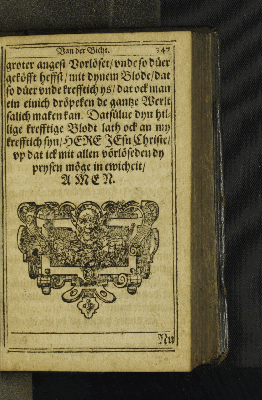 Van der Bicht. 247
groter angest Vorlöset/ vnde so düer
geköfft heffst/ mit dynem Blode/ dat
so düer vnde krefftich ys/ dat ock man
ein einich dröpeken de gantze Werlt
salich maken kan. Datsülue dyn hil-
lige krefftige Blodt lath ock an my
krefftich syn/ HERE JEsu Christe/
vp dat ick mit allen vörlöseden dy
prysen möge in ewicheit/
AMEN.
Nu